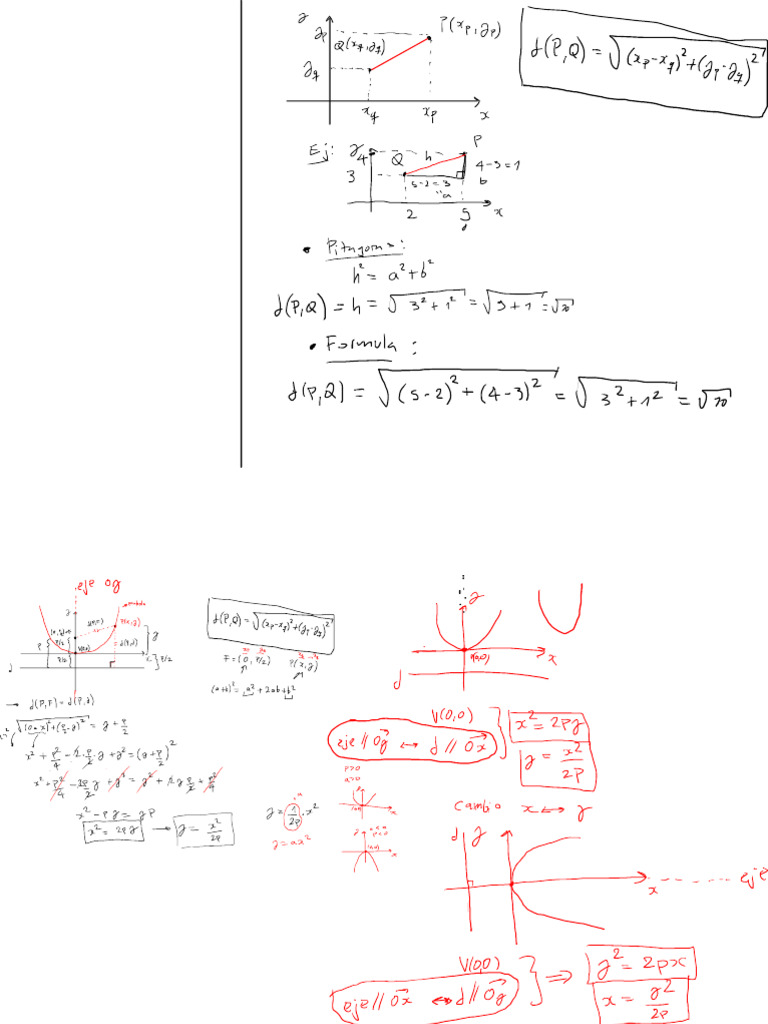 y
y_p
Q(x_q, y_q)
P(x_p, y_p)
d(P,Q) = √((x_p - x_q)² + (y_p - y_q)²)
y_q
x_q
x_p
x
Ej:
y
4
Q
h
P
4-3=1
3
5-2=3
b
"a
2
5
x
• Pitagoras:
h² = a² + b²
d(P,Q) = h = √(3² + 1²) = √(9+1) = √10
• Formula:
d(P,Q) = √((5-2)² + (4-3)²) = √(3² + 1²) = √10
eje Oy
y
P(x,y)
y
P
P/2
V(0,0)
P/2
x
P/2
d
d(P,Q) = √((x_p - x_q)² + (y_p - y_q)²)
F = (0, P/2)
P(x, y)
(a+b)² = a² + 2ab + b²
→ d(P,F) = d(P,d)
√((0-x)² + (P/2 - y)²) = y + P/2
x² + P²/4 - 2·P/2·y + y² = (y + P/2)²
x² + P²/4 - 2P/2 y + y² = y² + 2y P/2 + P²/4
x² - Py = yP
x² = 2Py → y = x²/2P
y = 1/2P · x²
y = ax²
P>0
a>0
x
x
y
V(0,0)
x
d
V(0,0)
eje // Oy ↔ d // Ox
x² = 2Py
y = x²/2P
Cambio x ↔ y
d
y
x
eje
V(0,0)
eje // Ox ↔ d // Oy
⇒
y² = 2px
x = y²/2P